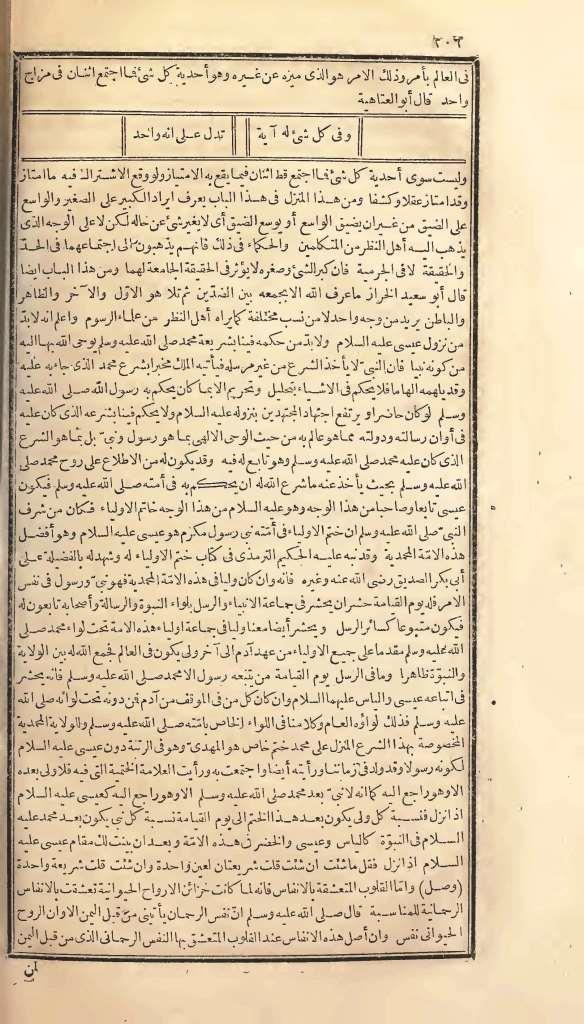 ٢٠٦
فى العالم بأمر وذلك الامر هو الذى ميزه عن غيره وهو أحدية كل شئ فما اجتمع اثنان فى مزاج
واحد قال أبو العتاهية
وفى كل شئ له آية تدل على انه واحد
وليست سوى أحدية كل شئ فما اجتمع قط اثنان فيما يقع به الامتياز ولو وقع الاشتراك فيه ما امتاز
وقد امتاز عقلا وكشفا ومن هذا المنزل فى هذا الباب يعرف ايراد الكبير على الصغير والواسع
على الضيق من غير ان يضيق الواسع أو يوسع الضيق أى لا يغير شئ عن حاله لكن لا على الوجه الذى
يذهب اليه أهل النظر من المتكلمين والحكماء فى ذلك فانهم يذهبون الى اجتماعهما فى الحد
والحقيقة لا فى الجرمية فان كبر الشئ وصغره لا يؤثر فى الحقيقة الجامعة لهما ومن هذا الباب ايضا
قال أبو سعيد الخراز ما عرف الله الا بجمعه بين الضدين ثم تلا هو الاول والآخر والظاهر
والباطن يريد من وجه واحد لا من نسب مختلفة كما يراه أهل النظر من علماء الرسوم واعلم انه لابد
من نزول عيسى عليه السلام ولابد من حكمه فينا بشريعة محمد صلى الله عليه وسلم يوحى الله بها اليه
من كونه نبيا فان النبى لا يأخذ الشرع من غير مرسله فيأتيه الملك مخبرا بشرع محمد الذى جاء به عليه
وقد يلهمه الهاما فلا يحكم فى الاشياء بتحليل وتحريم الا بما كان يحكم به رسول الله صلى الله عليه
وسلم لو كان حاضرا ويرتفع اجتهاد المجتهدين بنزوله عليه السلام ولا يحكم فينا بشرعه الذى كان عليه
فى أوان رسالته ودولته مما هو عالم به من حيث الوحى الالهى بما هو رسول ونبى بل بما هو الشرع
الذى كان عليه محمد صلى الله عليه وسلم وهو تابع له فيه وقد يكون له من الاطلاع على روح محمد صلى
الله عليه وسلم بحيث يأخذ عنه ما شرع الله له ان يحكم به فى أمته صلى الله عليه وسلم فيكون
عيسى تابعا وصاحبا من هذا الوجه وهو عليه السلام من هذا الوجه خاتم الاولياء فكان من شرف
النبى صلى الله عليه وسلم ان ختم الاولياء فى أمته نبى رسول مكرم هو عيسى عليه السلام وهو أفضل
هذه الامة المحمدية وقد نبه عليه الحكيم الترمذى فى كتاب ختم الاولياء له وشهد له بالفضيلة على
أبى بكر الصديق رضى الله عنه وغيره فانه وان كان وليا فى هذه الامة المحمدية فهو نبى ورسول فى نفس
الامر فله يوم القيامة حشران يحشر فى جماعة الانبياء والرسل بلواء النبوة والرسالة وأصحابه تابعون له
فيكون متبوعا كسائر الرسل ويحشر أيضا معنا وليا فى جماعة اولياء هذه الامة تحت لواء محمد صلى
الله عليه وسلم مقدما على جميع الاولياء من عهد آدم الى آخر ولى يكون فى العالم فجمع الله له بين الولاية
والنبوة ظاهرا وما فى الرسل يوم القيامة من يتبعه رسول الا محمد صلى الله عليه وسلم فانه يحشر
فى اتباعه عيسى والياس عليهما السلام وان كان كل من فى الموقف من آدم فمن دونه تحت لوائه صلى الله
عليه وسلم فذلك لواؤه العام وكلامنا فى اللواء الخاص بامته صلى الله عليه وسلم وللولاية المحمدية
المخصوصة بهذا الشرع المنزل على محمد ختم خاص هو المهدى وهو فى الرتبة دون عيسى عليه السلام
لكونه رسولا وقد ولد فى زماننا ورأيته أيضا واجتمعت به ورأيت العلامة الختمية التى فيه فلا ولى بعده
الا وهو راجع اليه كما انه لا نبى بعد محمد صلى الله عليه وسلم الا وهو راجع اليه كعيسى عليه السلام
اذا نزل فنسبة كل ولى يكون بعد هذا الختم الى يوم القيامة نسبة كل نبى يكون بعد محمد عليه
السلام فى النبوة كالياس وعيسى والخضر فى هذه الامة وبعد ان بينت لك مقام عيسى عليه
السلام اذا نزل فقل ما شئت ان شئت قلت شريعتان لعين واحدة وان شئت قلت شريعة واحدة
(وصل) واما القلوب المتعشقة بالانفاس فانه لما كانت خزائن الارواح الحيوانية تعشقت بالانفاس
الرحمانية للمناسبة قال صلى الله عليه وسلم ان نفس الرحمان يأتينى من قبل اليمن الا وان الروح
الحيوانى نفس وان أصل هذه الانفاس عند القلوب المتعشق بها النفس الرحمانى الذى من قبل اليمن
لمن